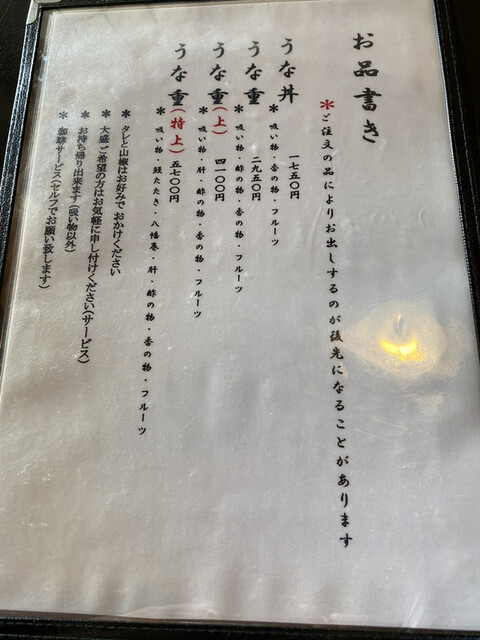 お品書き
＊ご注文の品によりお出しするのが後先になることがあります
うな丼 一七五〇円
＊吸い物・香の物・フルーツ
うな重 二九五〇円
＊吸い物・酢の物・香の物・フルーツ
うな重(上) 四一〇〇円
＊吸い物・肝・酢の物・香の物・フルーツ
うな重(特上) 五七〇〇円
＊吸い物・鰻たたき・八幡巻・肝・酢の物・香の物・フルーツ
＊タレと山椒はお好みで おかけください
＊大盛ご希望の方はお気軽に申し付けください(サービス)
＊お持ち帰り出来ます(吸い物以外)
＊珈琲サービス(セルフでお願い致します)